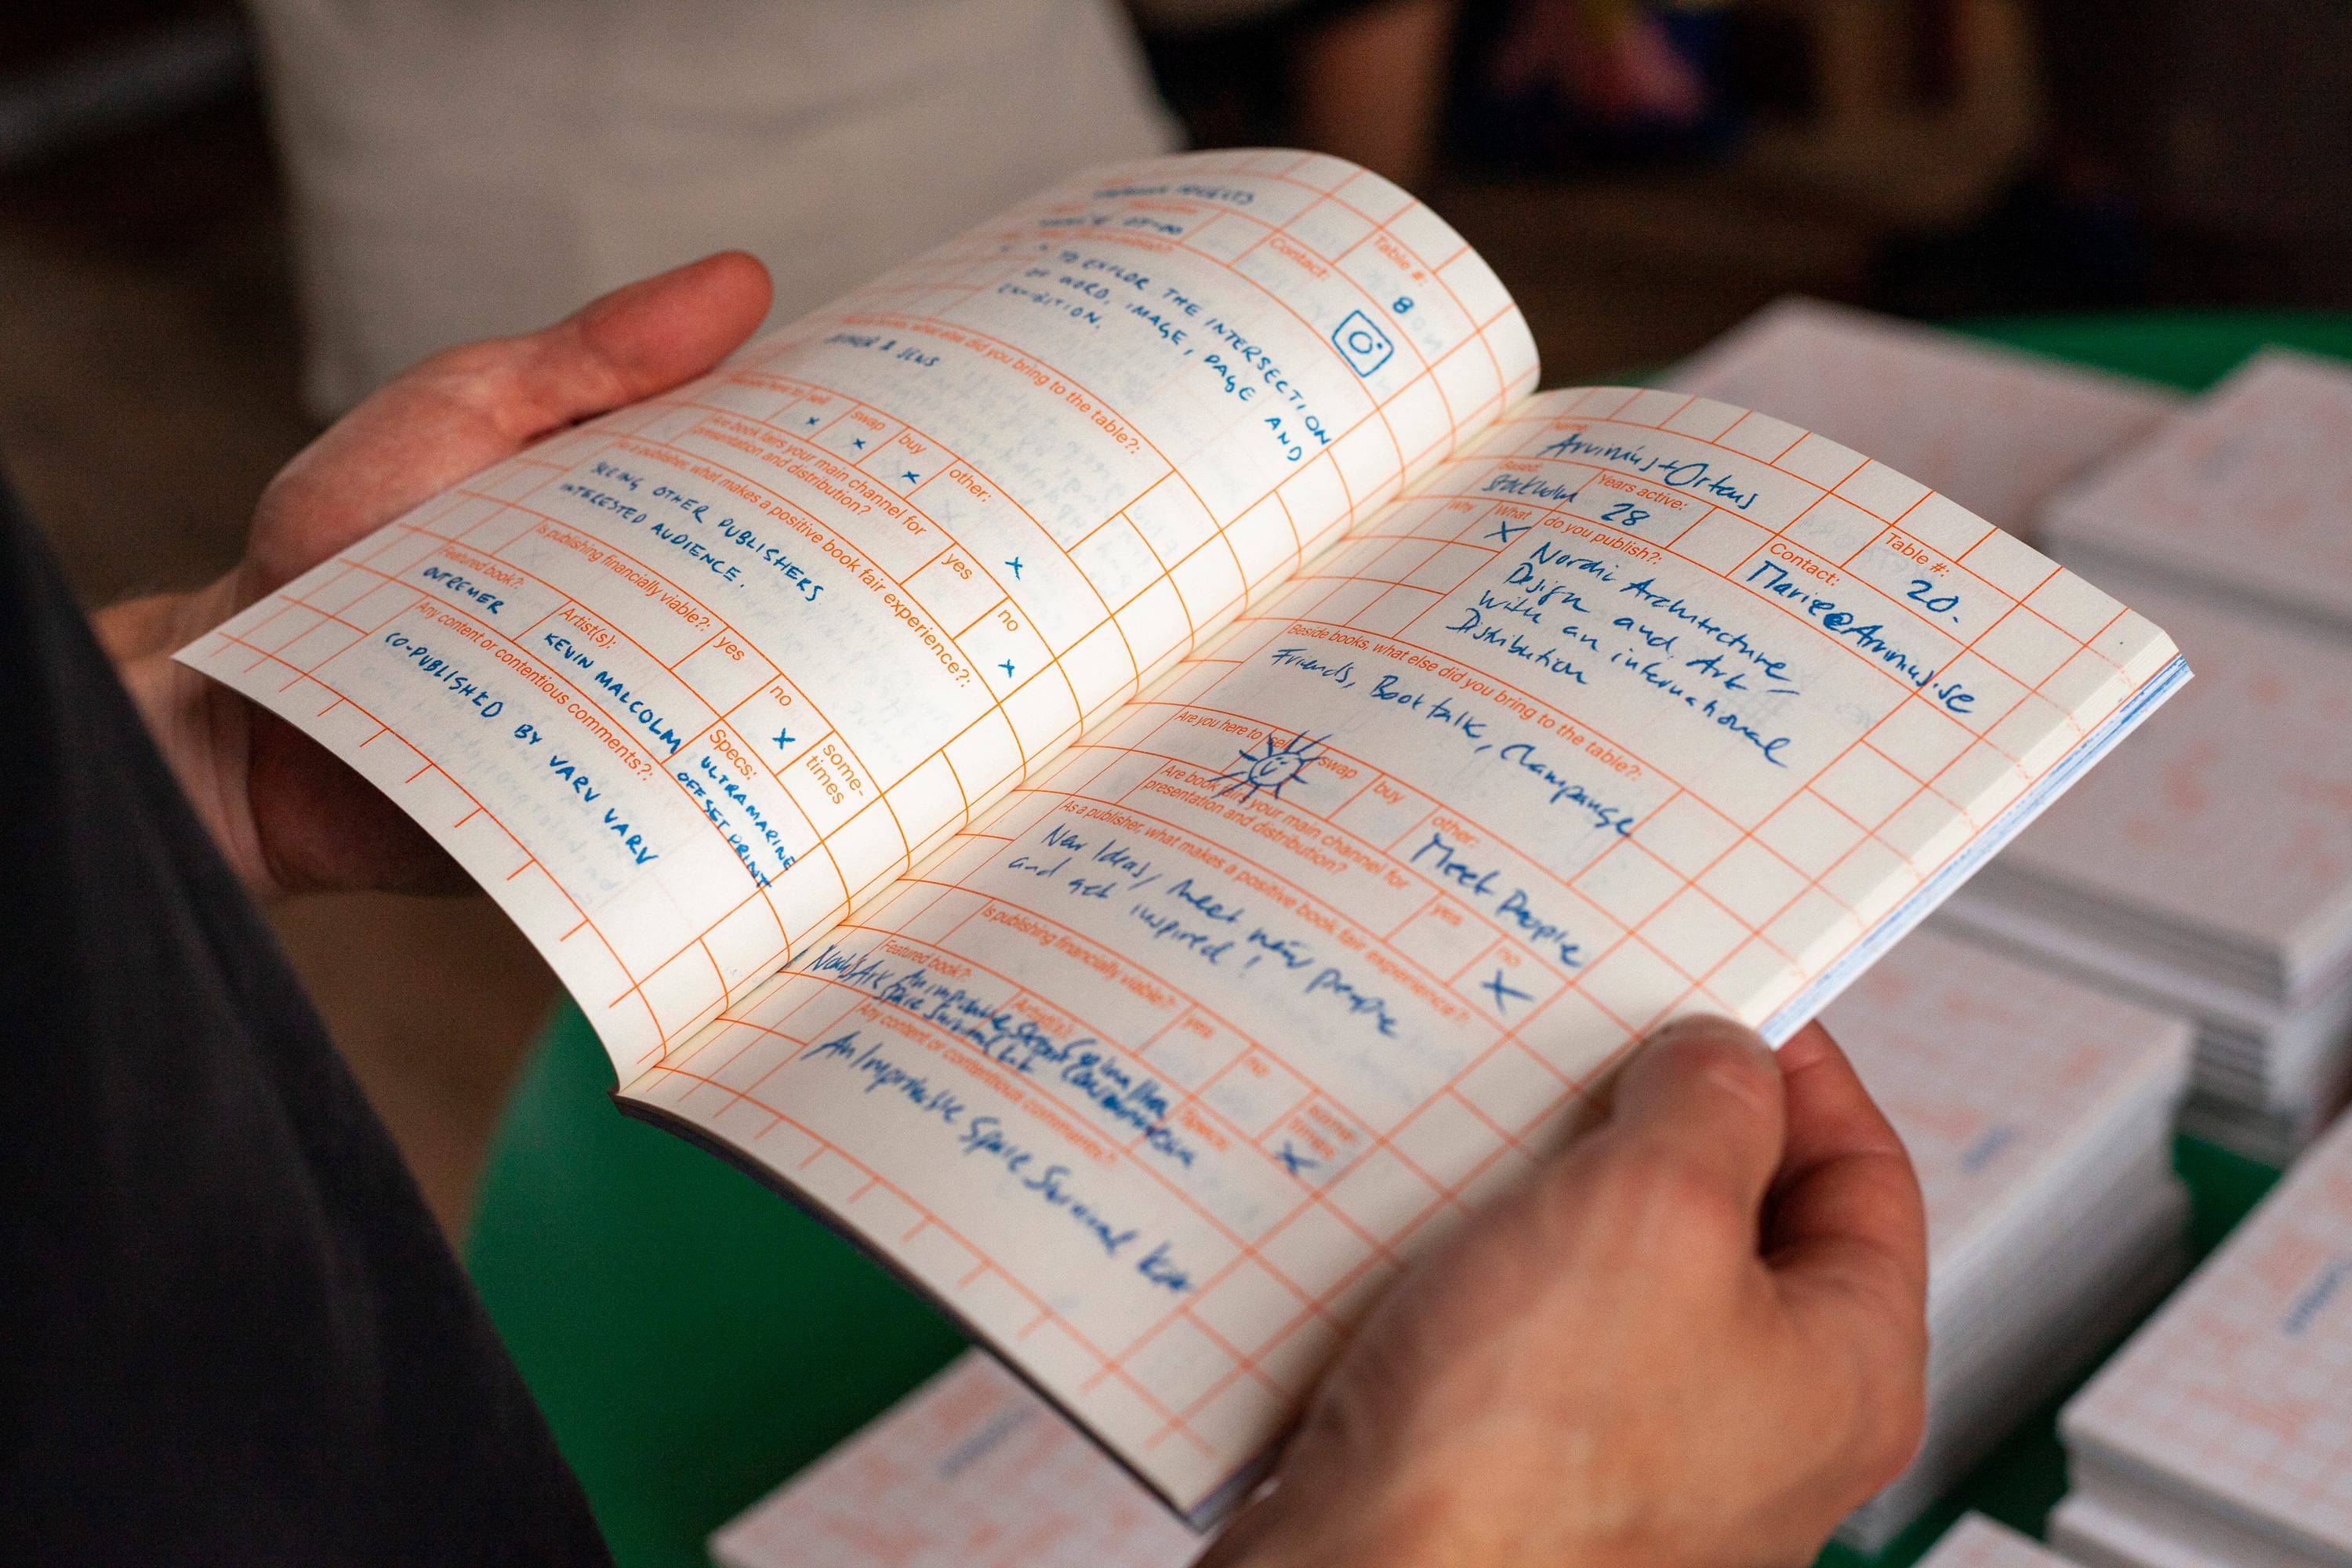 Table #:
8
Contact:
TO EXPLOR THE INTERSECTION
OF WORD, IMAGE, PAGE AND
EXHIBITION.
what else did you bring to the table?:
& JENS
sell
swap
buy
other:
x
x
x
Are book fairs your main channel for
presentation and distribution?
yes
x
no
x
As a publisher, what makes a positive book fair experience?:
SEEING OTHER PUBLISHERS
INTERESTED AUDIENCE.
Is publishing financially viable?:
yes
no
x
some-
times
Featured book?:
OUTREMER
Artist(s):
KEVIN MALCOLM
Specs:
ULTRAMARINE
OFFSET PRINT
Any content or contentious comments?:
CO-PUBLISHED BY VARV VARV
Name:
Arvinius+Orfeus
Based:
Stockholm
Years active:
28
Contact:
Marie@Arvinius.se
Table #:
20.
Why
What
X
do you publish?:
Nordic Architecture,
Design and Art
With an international
Distribution
Beside books, what else did you bring to the table?:
Friends, Book talk, Champange
Are you here to
sell
swap
buy
other:
Meet People
Are book fairs your main channel for
presentation and distribution?
yes
no
X
As a publisher, what makes a positive book fair experience?:
New Ideas, meet new people
and get inspired!
Is publishing financially viable?:
yes
no
some-
times
X
Featured book?:
Artist(s):
Specs:
Space Survival Kit
Any content or contentious comments?:
An Improbable Space Survival